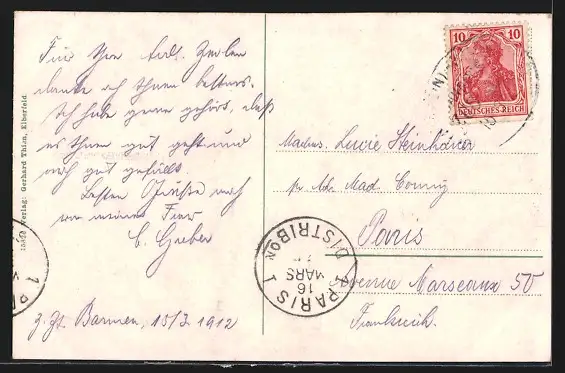 Für Ihre Zeilen
danke ich Ihnen bestens.
Ich habe gerne gehört, daß
es Ihnen gut geht und
auch gut gefällt.
Besten Grüße auch
von meiner Frau
C. Gueber
z. Zt. Barmen, 15/3. 1912
Verlag: Gerhard Thien, Elberfeld.
10
10
DEUTSCHES REICH
Lucie Steinhäuser
Mad.
Paris
Avenue Marseaux 50
Frankreich.
PARIS 1
DISTRIBON
16
MARS